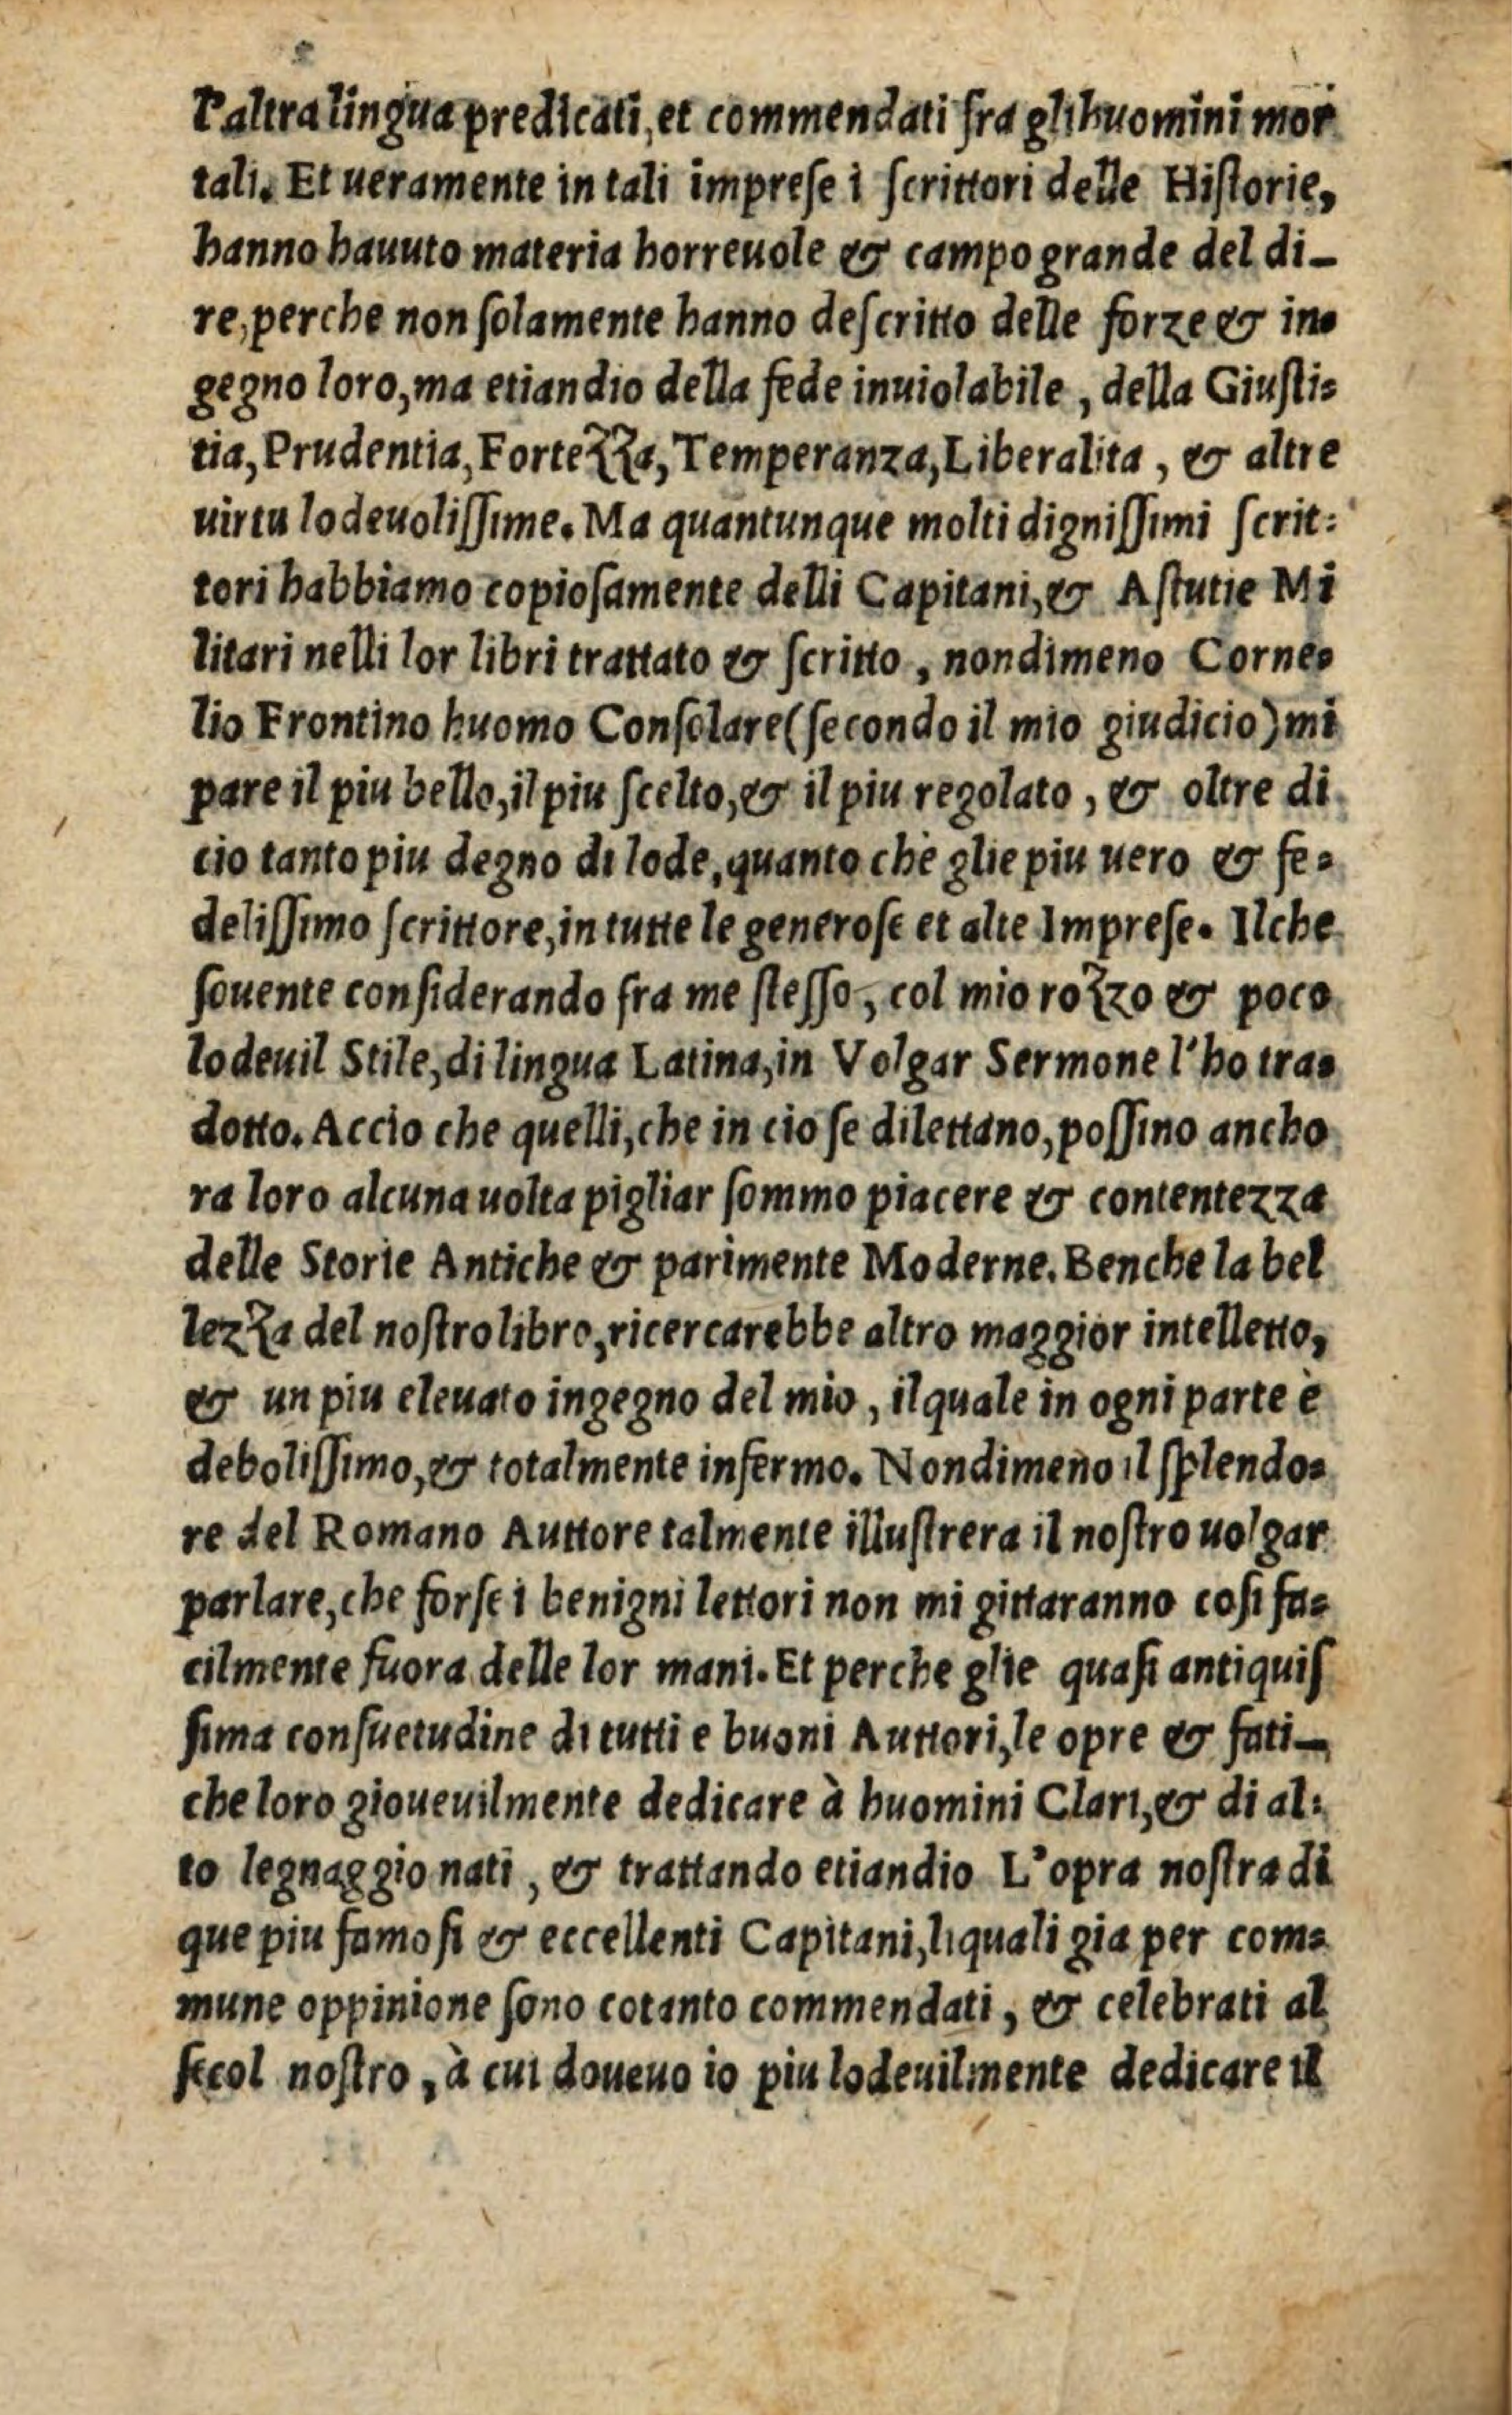 l'altra lingua predicati, et commendati fra gli huomini mor
tali. Et ueramente in tali imprese i ſcrittori delle Hiſtorie,
hanno hauuto materia horreuole & campo grande del di-
re, perche non ſolamente hanno deſcritto delle forze & in-
gegno loro, ma etiandio della fede inuiolabile, della Giuſti-
tia, Prudentia, Fortezza, Temperanza, Liberalita, & altre
uirtu lodeuoliſſime. Ma quantunque molti digniſſimi ſcrit-
tori habbiamo copioſamente delli Capitani, & Aſtutie Mi
litari nelli lor libri trattato & ſcritto, nondimeno Corne-
lio Frontino huomo Conſolare (ſecondo il mio giudicio) mi
pare il piu bello, il piu ſcelto, & il piu regolato, & oltre di
cio tanto piu degno di lode, quanto che glie piu uero & fe-
deliſſimo ſcrittore, in tutte le generoſe et alte Impreſe. Ilche
ſouente conſiderando fra me ſteſſo, col mio rozzo & poco
lodeuil Stile, di lingua Latina, in Volgar Sermone l'ho tra-
dotto. Accio che quelli, che in cio ſe dilettano, poſſino ancho
ra loro alcuna uolta pigliar ſommo piacere & contentezza
delle Storie Antiche & parimente Moderne. Benche la bel
lezza del noſtro libro, ricercarebbe altro maggior intelletto,
& un piu eleuato ingegno del mio, ilquale in ogni parte è
deboliſſimo, & totalmente infermo. Nondimeno il ſplendo-
re del Romano Auttore talmente illuſtrera il noſtro uolgar
parlare, che forſe i benigni lettori non mi gittaranno coſi fa-
cilmente fuora delle lor mani. Et perche glie quaſi antiquiſ
ſima conſuetudine di tutti e buoni Auttori, le opre & fati-
che loro gioueuilmente dedicare à huomini Clari, & di al-
to legnaggio nati, & trattando etiandio L'opra noſtra di
que piu famoſi & eccellenti Capitani, liquali gia per com-
mune oppinione ſono cotanto commendati, & celebrati al
ſecol noſtro, à cui doueuo io piu lodeuilmente dedicare il